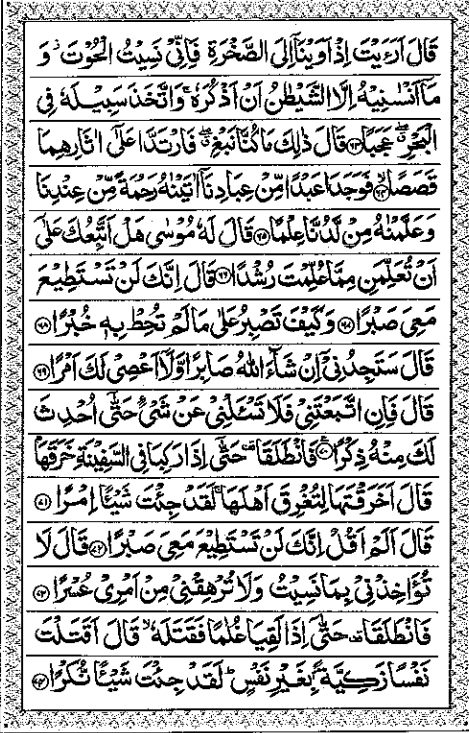 قَالَ اَرَءَيْتَ اِذْ اَوَيْنَاۤ اِلَى الصَّخْرَةِ فَاِنِّىْ نَسِيْتُ الْحُوْتَ ؗ وَ
مَاۤ اَنْسٰىنِيْهُ اِلَّا الشَّيْطٰنُ اَنْ اَذْكُرَهٗ ۚ وَاتَّخَذَ سَبِيْلَهٗ فِى
الْبَحْرِ ۖۗ عَجَبًا ﴿۶۳﴾ قَالَ ذٰلِكَ مَا كُنَّا نَبْغِ ۖۗ فَارْتَدَّا عَلٰۤى اٰثَارِهِمَا
قَصَصًا ﴿۶۴﴾ فَوَجَدَا عَبْدًا مِّنْ عِبَادِنَاۤ اٰتَيْنٰهُ رَحْمَةً مِّنْ عِنْدِنَا
وَعَلَّمْنٰهُ مِنْ لَّدُنَّا عِلْمًا ﴿۶۵﴾ قَالَ لَهٗ مُوْسٰى هَلْ اَتَّبِعُكَ عَلٰۤى
اَنْ تُعَلِّمَنِ مِمَّا عُلِّمْتَ رُشْدًا ﴿۶۶﴾ قَالَ اِنَّكَ لَنْ تَسْتَطِيْعَ
مَعِىَ صَبْرًا ﴿۶۷﴾ وَكَيْفَ تَصْبِرُ عَلٰى مَا لَمْ تُحِطْ بِهٖ خُبْرًا ﴿۶۸﴾
قَالَ سَتَجِدُنِىْۤ اِنْ شَآءَ اللّٰهُ صَابِرًا وَّلَاۤ اَعْصِىْ لَكَ اَمْرًا ﴿۶۹﴾
قَالَ فَاِنِ اتَّبَعْتَنِىْ فَلَا تَسْـَٔلْنِىْ عَنْ شَىْءٍ حَتّٰۤى اُحْدِثَ
لَكَ مِنْهُ ذِكْرًا ﴿۷۰﴾ فَانْطَلَقَا ۥ حَتّٰۤى اِذَا رَكِبَا فِى السَّفِيْنَةِ خَرَقَهَا ؕ
قَالَ اَخَرَقْتَهَا لِتُغْرِقَ اَهْلَهَا ۚ لَقَدْ جِئْتَ شَيْـًٔا اِمْرًا ﴿۷۱﴾
قَالَ اَلَمْ اَقُلْ اِنَّكَ لَنْ تَسْتَطِيْعَ مَعِىَ صَبْرًا ﴿۷۲﴾ قَالَ لَا
تُؤَاخِذْنِىْ بِمَا نَسِيْتُ وَلَا تُرْهِقْنِىْ مِنْ اَمْرِىْ عُسْرًا ﴿۷۳﴾
فَانْطَلَقَا ۥ حَتّٰۤى اِذَا لَقِيَا غُلٰمًا فَقَتَلَهٗ ۙ قَالَ اَقَتَلْتَ
نَفْسًا زَكِيَّةًۢ بِغَيْرِ نَفْسٍ ؕ لَقَدْ جِئْتَ شَيْـًٔا نُّكْرًا ﴿۷۴﴾